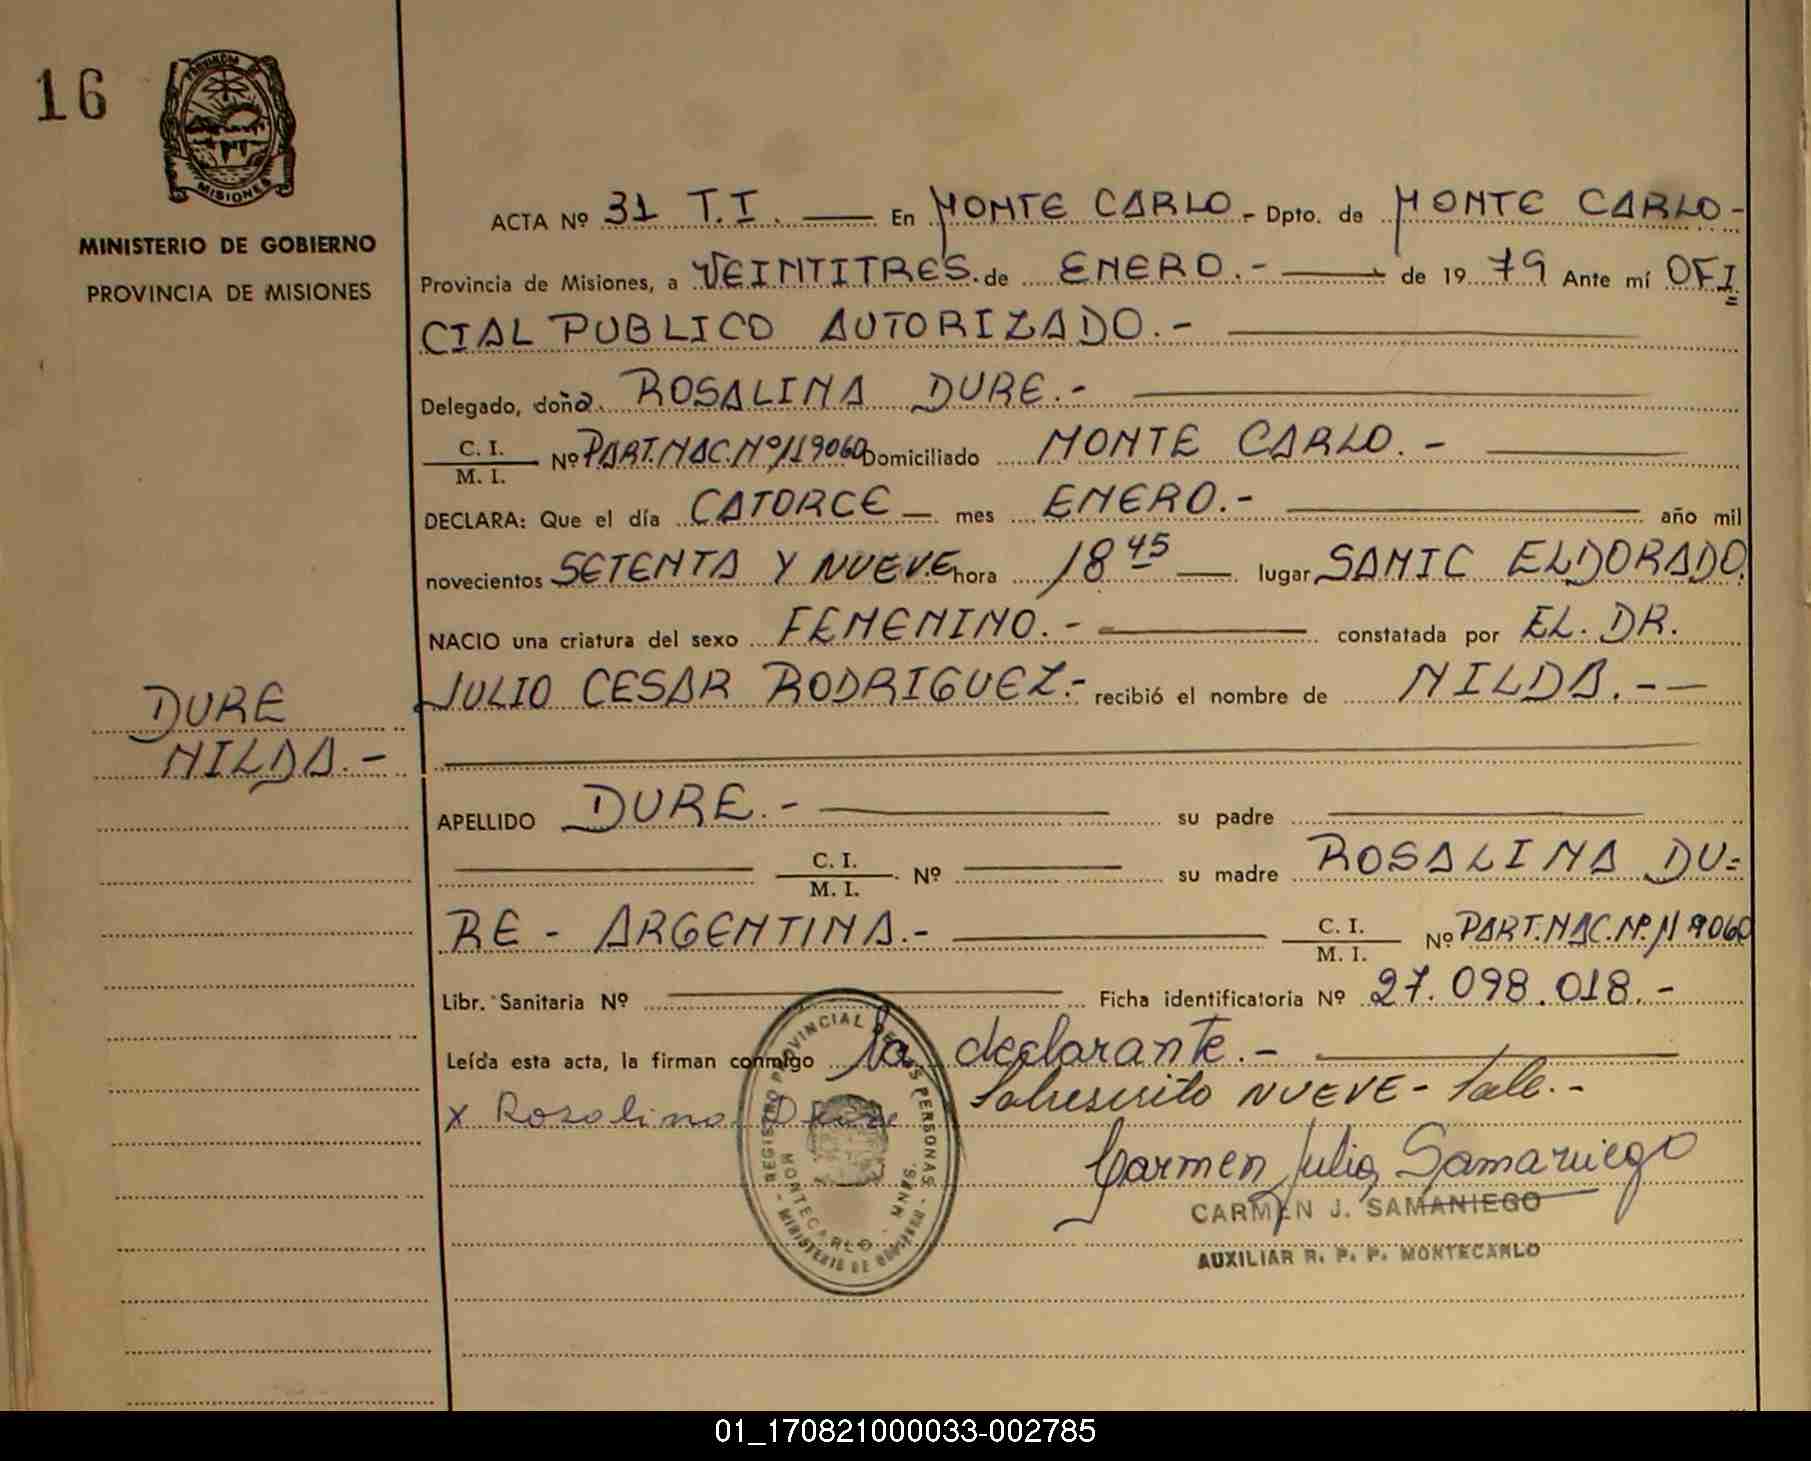 16
PROVINCIA DE
MISIONES
MINISTERIO DE GOBIERNO
PROVINCIA DE MISIONES
ACTA Nº 31 T.I. En MONTE CARLO - Dpto. de MONTE CARLO -
Provincia de Misiones, a VEINTITRES. de ENERO. - de 19 79 Ante mí OFI
CIAL PUBLICO AUTORIZADO. -
Delegado, doña. ROSALINA DURE. -
C. I.
M. I. Nº PART. NAC. Nº/19060 Domiciliado MONTE CARLO. -
DECLARA: Que el día CATORCE - mes ENERO. - año mil
novecientos SETENTA Y NUEVE hora 18 45 lugar SAMIC ELDORADO.
NACIO una criatura del sexo FEMENINO. - constatada por EL. DR.
JULIO CESAR RODRIGUEZ. - recibió el nombre de NILDA. - -
DURE
NILDA. -
APELLIDO DURE. - su padre
C. I.
M. I. Nº su madre ROSALINA DU=
RE - ARGENTINA. - C. I.
M. I. Nº PART. NAC. Nº. 119060
Libr. Sanitaria Nº Ficha identificatoria Nº 27.098.018. -
Leída esta acta, la firman conmigo la declarante. -
Sobrescrito NUEVE - Vale. -
x Rosalina Dure
Carmen Julia Samaniego
CARMEN J. SAMANIEGO
AUXILIAR R. P. P. MONTECARLO
REGISTRO PROVINCIAL DE LAS PERSONAS - MINISTERIO DE GOBIERNO -
MONTECARLO - MNES.
01_170821000033-002785